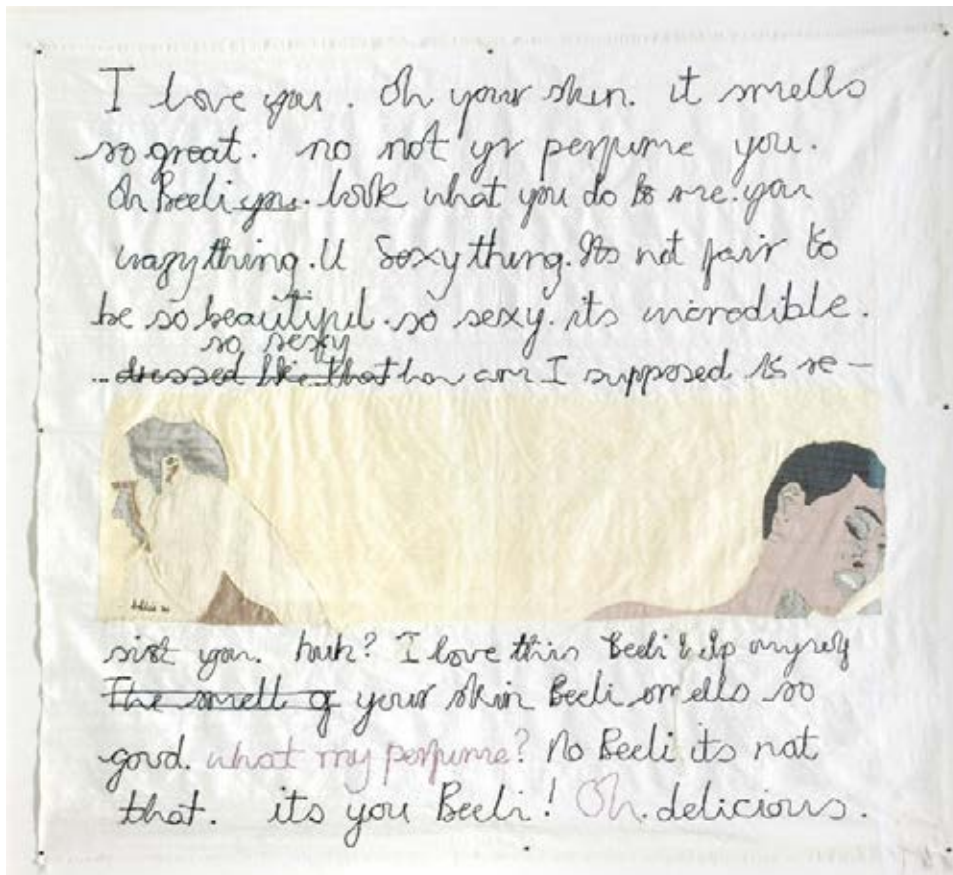 I love you. Oh your skin. it smells
so great. no not yr perfume you.
Oh Beeli you. look what you do to me. you
crazy thing. U Sexy thing. Its not fair to
be so beautiful. so sexy. its incredible.
so sexy
... dressed like that how can I supposed to re-
sist you. huh? I love this Beeli myself
The smell of your skin Beeli smells so
good. what my perfume? No Beeli its not
that. its you Beeli! Oh delicious.